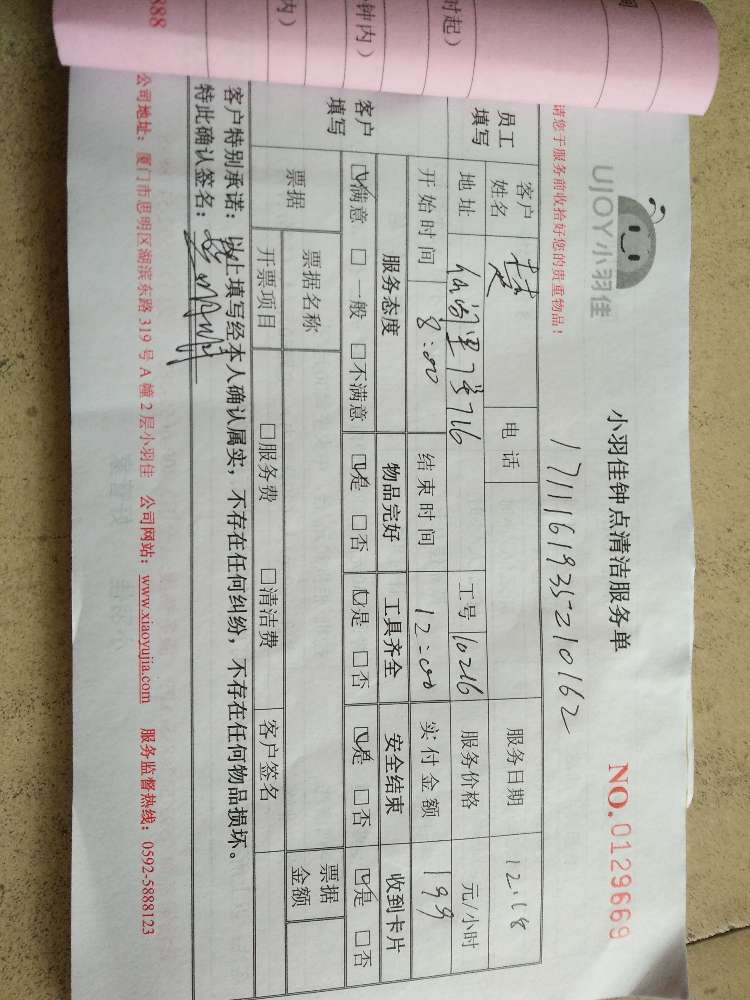 888
内）
钟内）
时起）
UJOY小羽佳
小羽佳钟点清洁服务单
NO.0129669
请您于服务前收拾好您的贵重物品！
1711161935210162
员工填写
客户姓名
楚
电话
服务日期
12.18
地址
工号
10216
服务价格
元/小时
开始时间
8:00
结束时间
12:00
实付金额
199
客户填写
服务态度
物品完好
工具齐全
安全结束
收到卡片
☑满意 □一般 □不满意
☑是 □否
☑是 □否
☑是 □否
☑是 □否
票据
票据名称
票据金额
开票项目
□服务费 □清洁费
客户签名
客户特别承诺：以上填写经本人确认属实，不存在任何纠纷，不存在任何物品损坏。
特此确认签名：
公司地址：厦门市思明区湖滨东路 319 号 A 幢 2 层小羽佳 公司网站：www.xiaoyujia.com 服务监督热线：0592-5888123